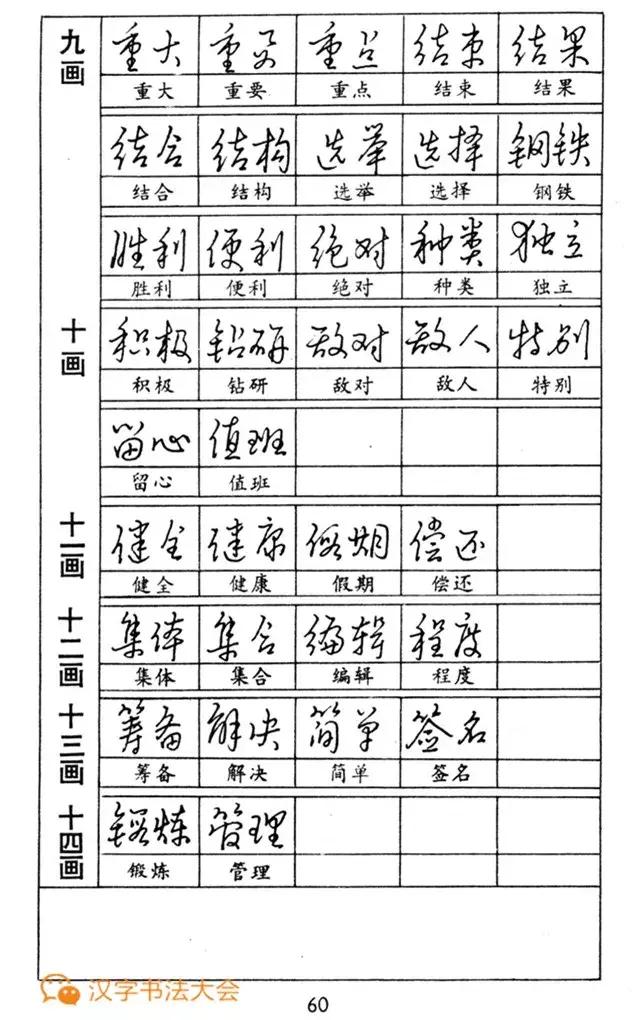 九画
重大 重要 重点 结束 结果
重大 重要 重点 结束 结果
结合 结构 选举 选择 钢铁
结合 结构 选举 选择 钢铁
胜利 便利 绝对 种类 独立
胜利 便利 绝对 种类 独立
十画
积极 钻研 敌对 敌人 特别
积极 钻研 敌对 敌人 特别
留心 值班
留心 值班
十一画
健全 健康 假期 偿还
健全 健康 假期 偿还
十二画
集体 集合 编辑 程度
集体 集合 编辑 程度
十三画
筹备 解决 简单 签名
筹备 解决 简单 签名
十四画
锻炼 管理
锻炼 管理
汉字书法大会
60